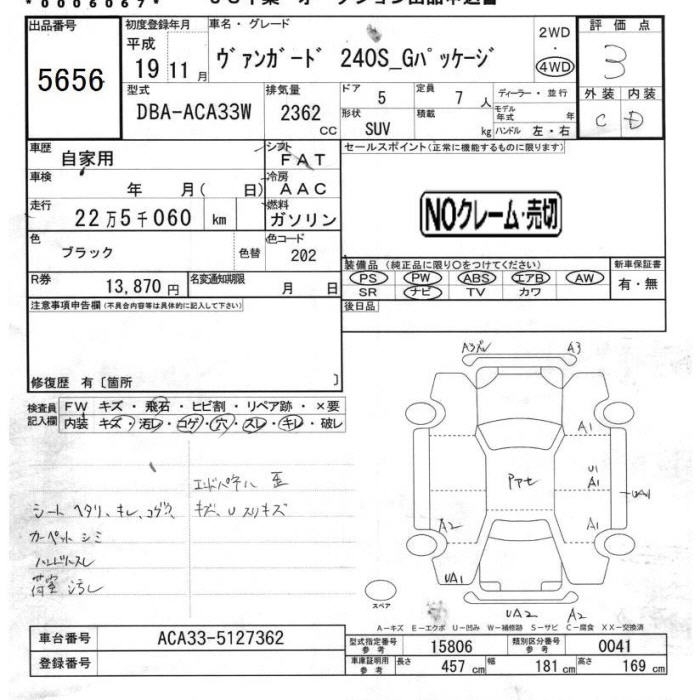 *0006067*
出品番号
5656
初度登録年月
平成
19 11月
車名・グレード
ヴァンガード 240S_Gパッケージ
2WD
・
4WD
評価点
3
外装 内装
C D
型式
DBA-ACA33W
排気量
2362
CC
ドア 5
定員 7 人
ディーラー・並行
形状
SUV
積載
kg
モデル年式 年
ハンドル 左・右
車歴
自家用
シフト
FAT
車検
年 月( 日)
冷房
AAC
走行
22万5千060 km
燃料
ガソリン
色
ブラック
色替
色コード
202
R券
13,870円
名変通知期限
月 日
セールスポイント(正常に機能するものに限ります)
NOクレーム・売切
装備品(純正品に限り○をつけてください)
PS PW ABS エアB AW
SR ナビ TV カワ
新車保証書
有・無
後日品
注意事項申告欄(不具合内容等は具体的に記入して下さい)
修復歴 有〔箇所 〕
検査員
記入欄
FW キズ・飛石・ヒビ割・リペア跡・×要
内装 キズ・汚レ・コゲ・穴・スレ・キレ・破レ
シート ヘタリ、キレ、コゲ穴、
カーペット シミ
ハンドルスレ
荷室 汚レ
エンドパネル 歪
キズ、Uスリキズ
A3
A1
U1
A1
UA1
A1
A2
UA1
UA2
A2
スペア
A-キズ E-エクボ U-凹み W-補修跡 S-サビ C-腐食 XX-交換済
車台番号
ACA33-5127362
登録番号
型式指定番号
参考
15806
類別区分番号
参考
0041
車庫証明用
参考
長さ 457 cm
幅 181 cm
高さ 169 cm